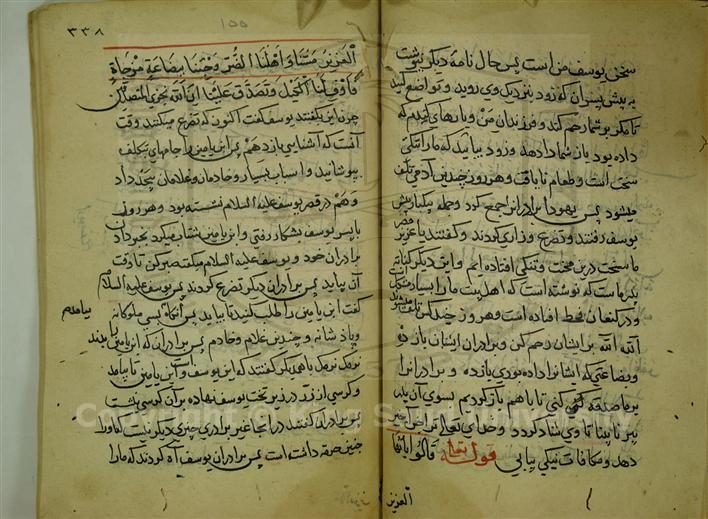 سخن یوسف من است پس حال نامهٔ دیگر نبوشت
به پیش پسران که زود نزدیک وی روید و تواضع کنید
تا مگر بر شما رحم کند و فرزندان من و بارهای گندم که
داده بود باز شما دادهد و زود بیائید که ما را تنگی
سخت است و طعام نایافت و هر روز چندین آدمی تلف
میشود پس یهودا برادرانرا جمع کرد و جمله یکبار پیش
یوسف رفتند و تضرع و زاری کردند و گفتند یا عزیز مصر
ما سخت درین محنت و تنگی افتاده ایم و این دیگر کتابه
پدر ماست که نوشته است که اهل بیت ما را بسیار
و در کنعان قحط افتاده است و هر روز چند کس تلف میشوند
الله الله بر ایشان رحم کن و برادران ایشان باز ده
و بضاعتی که ایشانرا داده بودی باز ده و برادرانرا
بر ما صدقه کنی تا با هم باز گردیم سوی آن پدر
پیر نابینا تا وی شاد گردد و خدای تعالی ترا جزای خیر
دهد و مکافات نیکی یابی قوله تعالی قالوا یا ایها
العزیز
۳۳۸
۱۵۵
العزیز مسنا و اهلنا الضر و جئنا ببضاعة مزجاة
فاوف لنا الکیل و تصدق علینا ان الله یجزی المتصدقین
چون این بگفتند یوسف گفت اکنون که تضرع میکنند وقت
آنست که آشنایی باز دهم پس ابن یامین را جامهای بتکلف
بپوشانید و اسباب بسیار و خادمان و غلامان بیحد داد
و هم در قصر یوسف علیه السلام نشسته بود و هر روز
با پس یوسف بشکار رفتی و ابن یامین شتاب میکرد بخبر دادن
برادران خود و یوسف علیه السلام میگفت صبر کن تا وقت
آن بیاید پس برادران دیگر تضرع کردند پس یوسف علیه السلام
گفت ابن یامین را طلب کنید تا بیاید پس آنگاه بسی ملوکانه
و پادشانه و چندین غلام و خادم پس برادران که ابن یامین را بدیند
بیامدم
نرمک نرمک با همدیگر گفتند که این یوسف و ابن یامین تا بیامد
و کرسی از زر در زیر تخت یوسف نهاده بر آن کرسی نشست
پس برادران گفتند در اینجا غیر برادری چیزی دیگر نیست که او را
چنین حرمت داشته است پس برادران یوسف آه کردند که ما را
Copyright © King Saud University